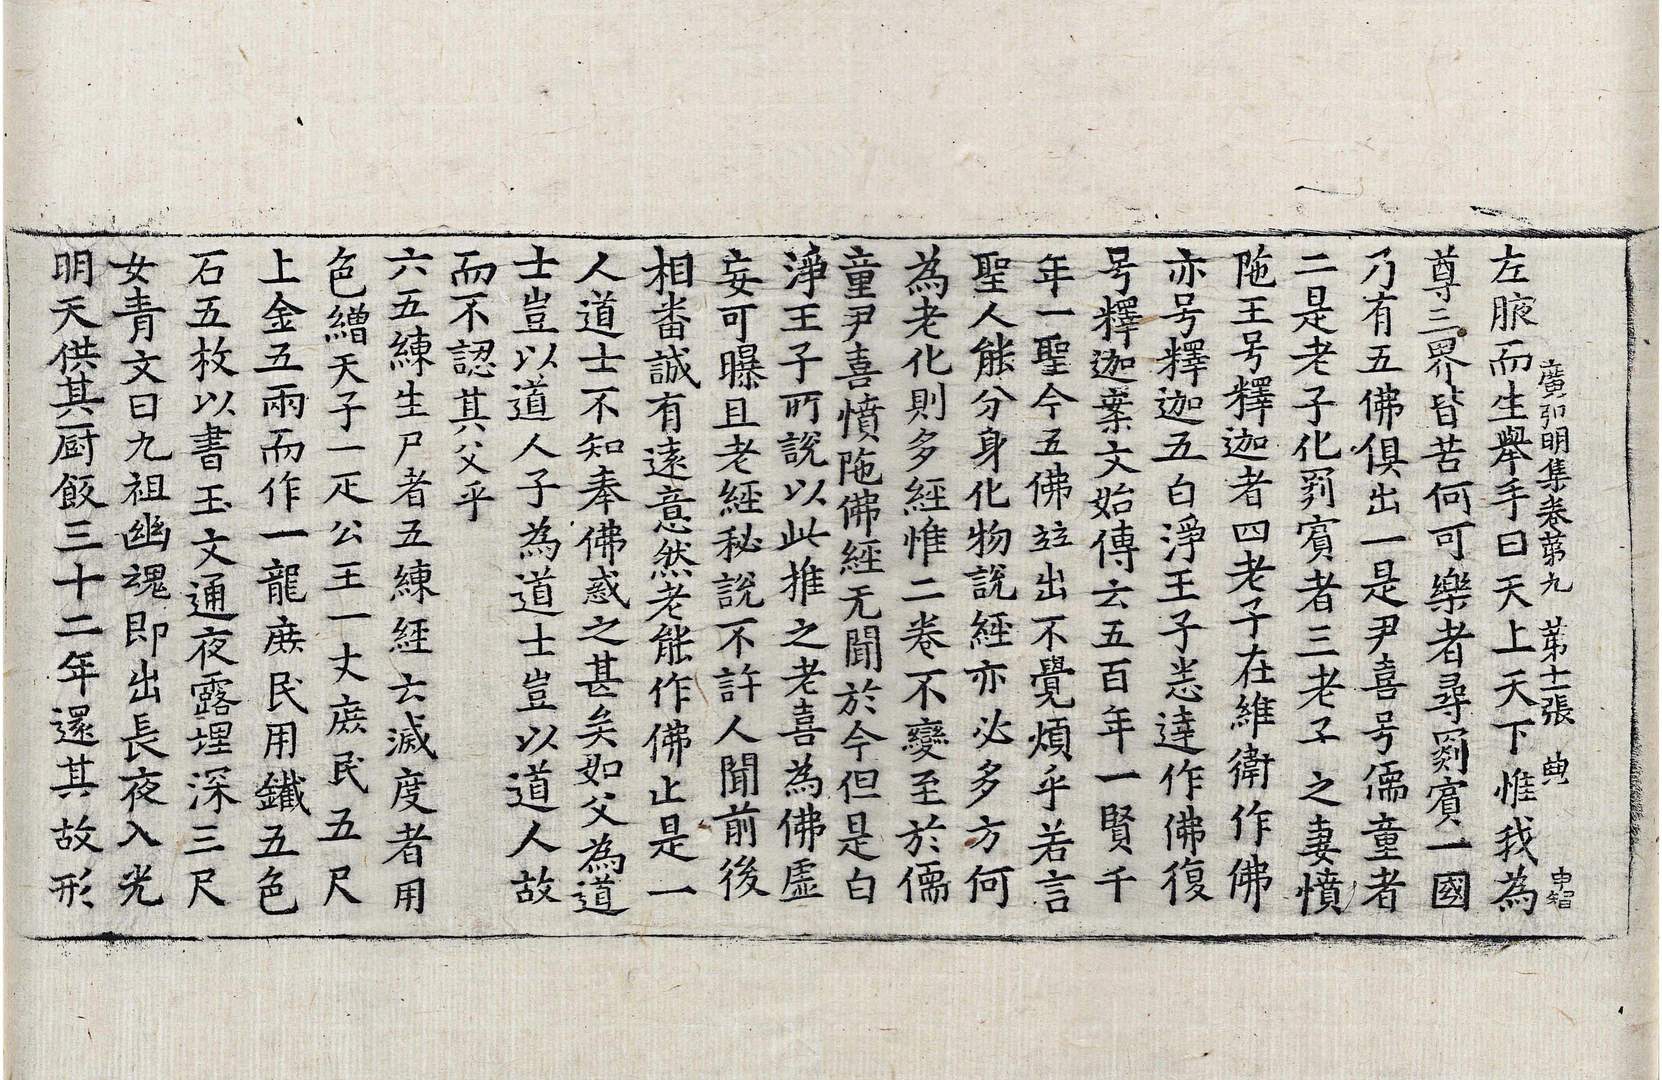 廣弘明集卷第九 第十一張 典 申智
左腋而生舉手曰天上天下惟我為
尊三界皆苦何可樂者尋罽賓一國
乃有五佛俱出一是尹喜号儒童者
二是老子化罽賓者三老子之妻憤
陁王号釋迦者四老子在維衛作佛
亦号釋迦五白淨王子悉達作佛復
号釋迦案文始傳云五百年一賢千
年一聖今五佛並出不覺煩乎若言
聖人能分身化物說經亦必多方何
為老化則多經惟二卷不變至於儒
童尹喜憤陁佛經无聞於今但是白
淨王子所說以此推之老喜為佛虛
妄可曝且老經秘說不許人聞前後
相番誠有遠意然老能作佛止是一
人道士不知奉佛惑之甚矣如父為道
士豈以道人子為道士豈以道人故
而不認其父乎
六五練生尸者五練經云滅度者用
色繒天子一疋公王一丈庶民五尺
上金五兩而作一龍庶民用鐵五色
石五枚以書玉文通夜露埋深三尺
女青文曰九祖幽魂即出長夜入光
明天供其厨飯三十二年還其故形